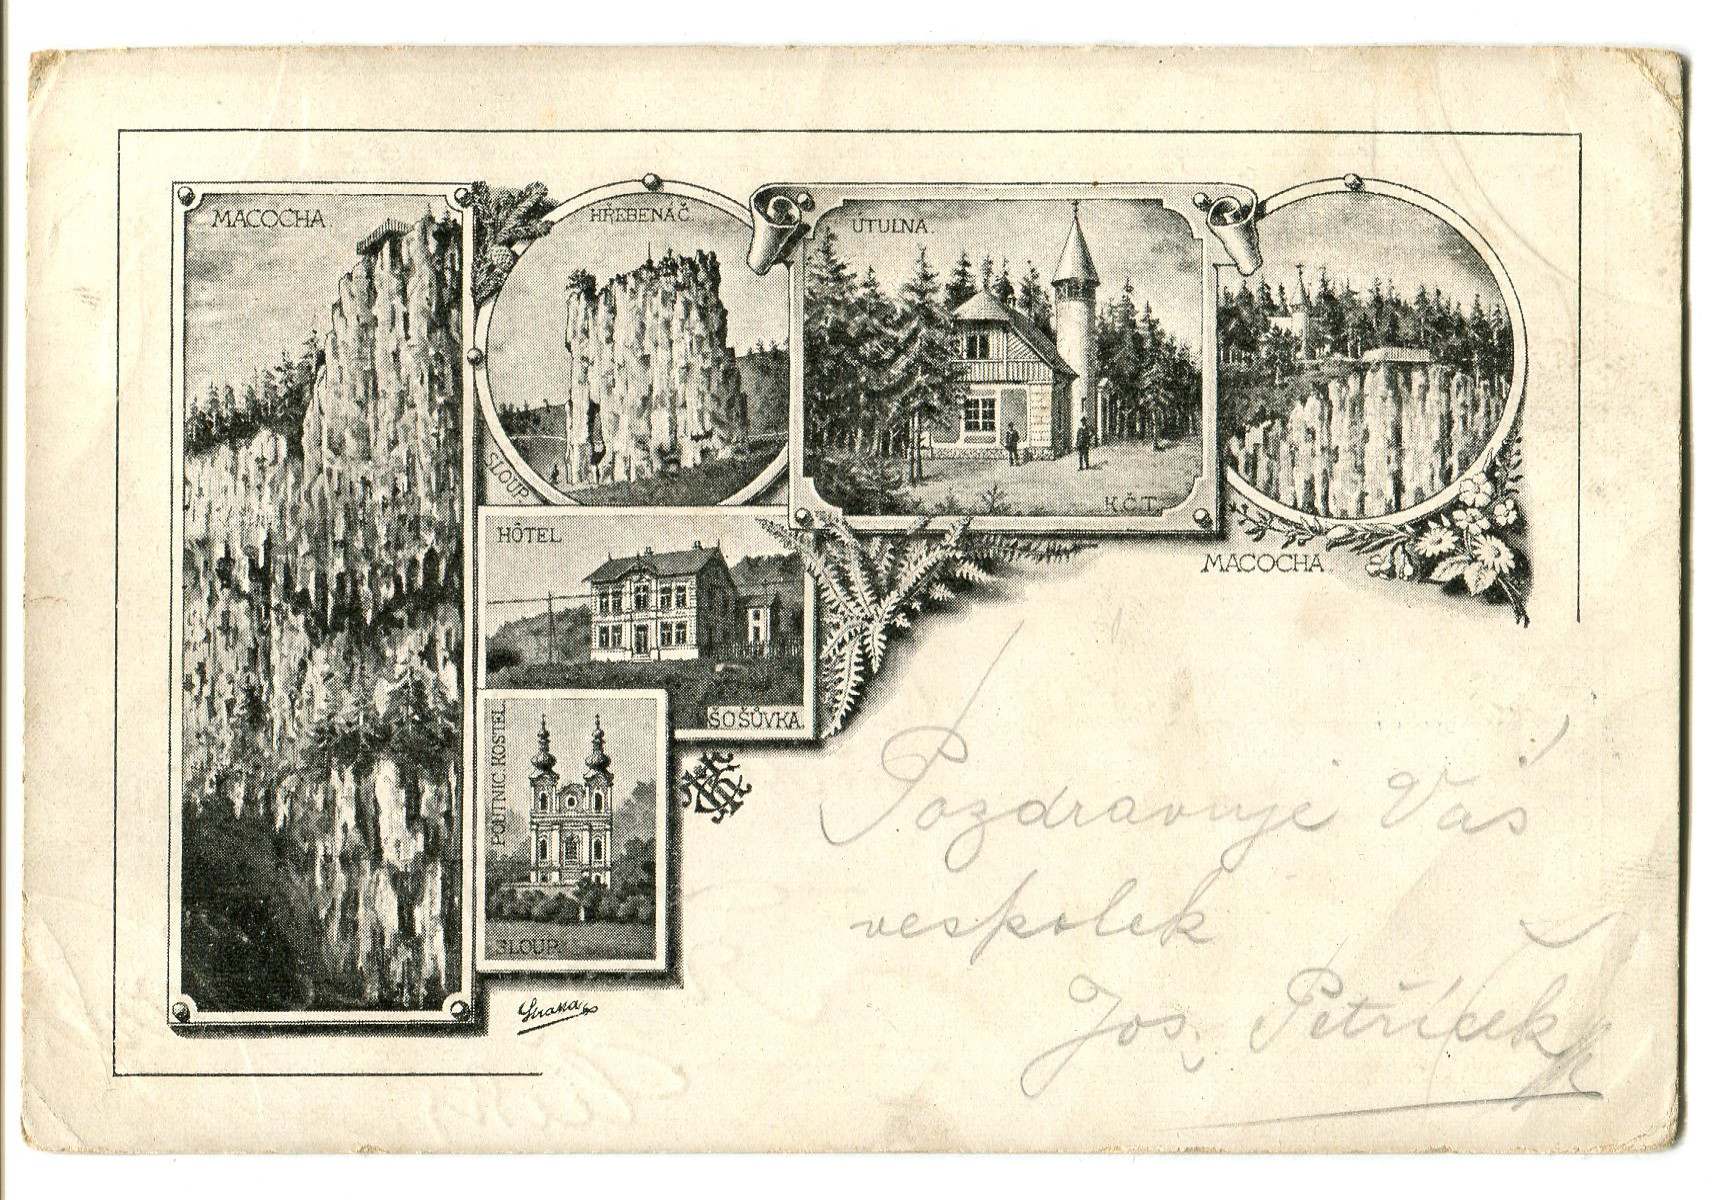 MACOCHA.
HŘEBENÁČ.
SLOUP.
ÚTULNA.
K.Č.T.
MACOCHA.
HÔTEL
ŠOŠŮVKA.
POUTNIC. KOSTEL
SLOUP.
Pozdravuje Vás
vespolek
Jos. Petříček